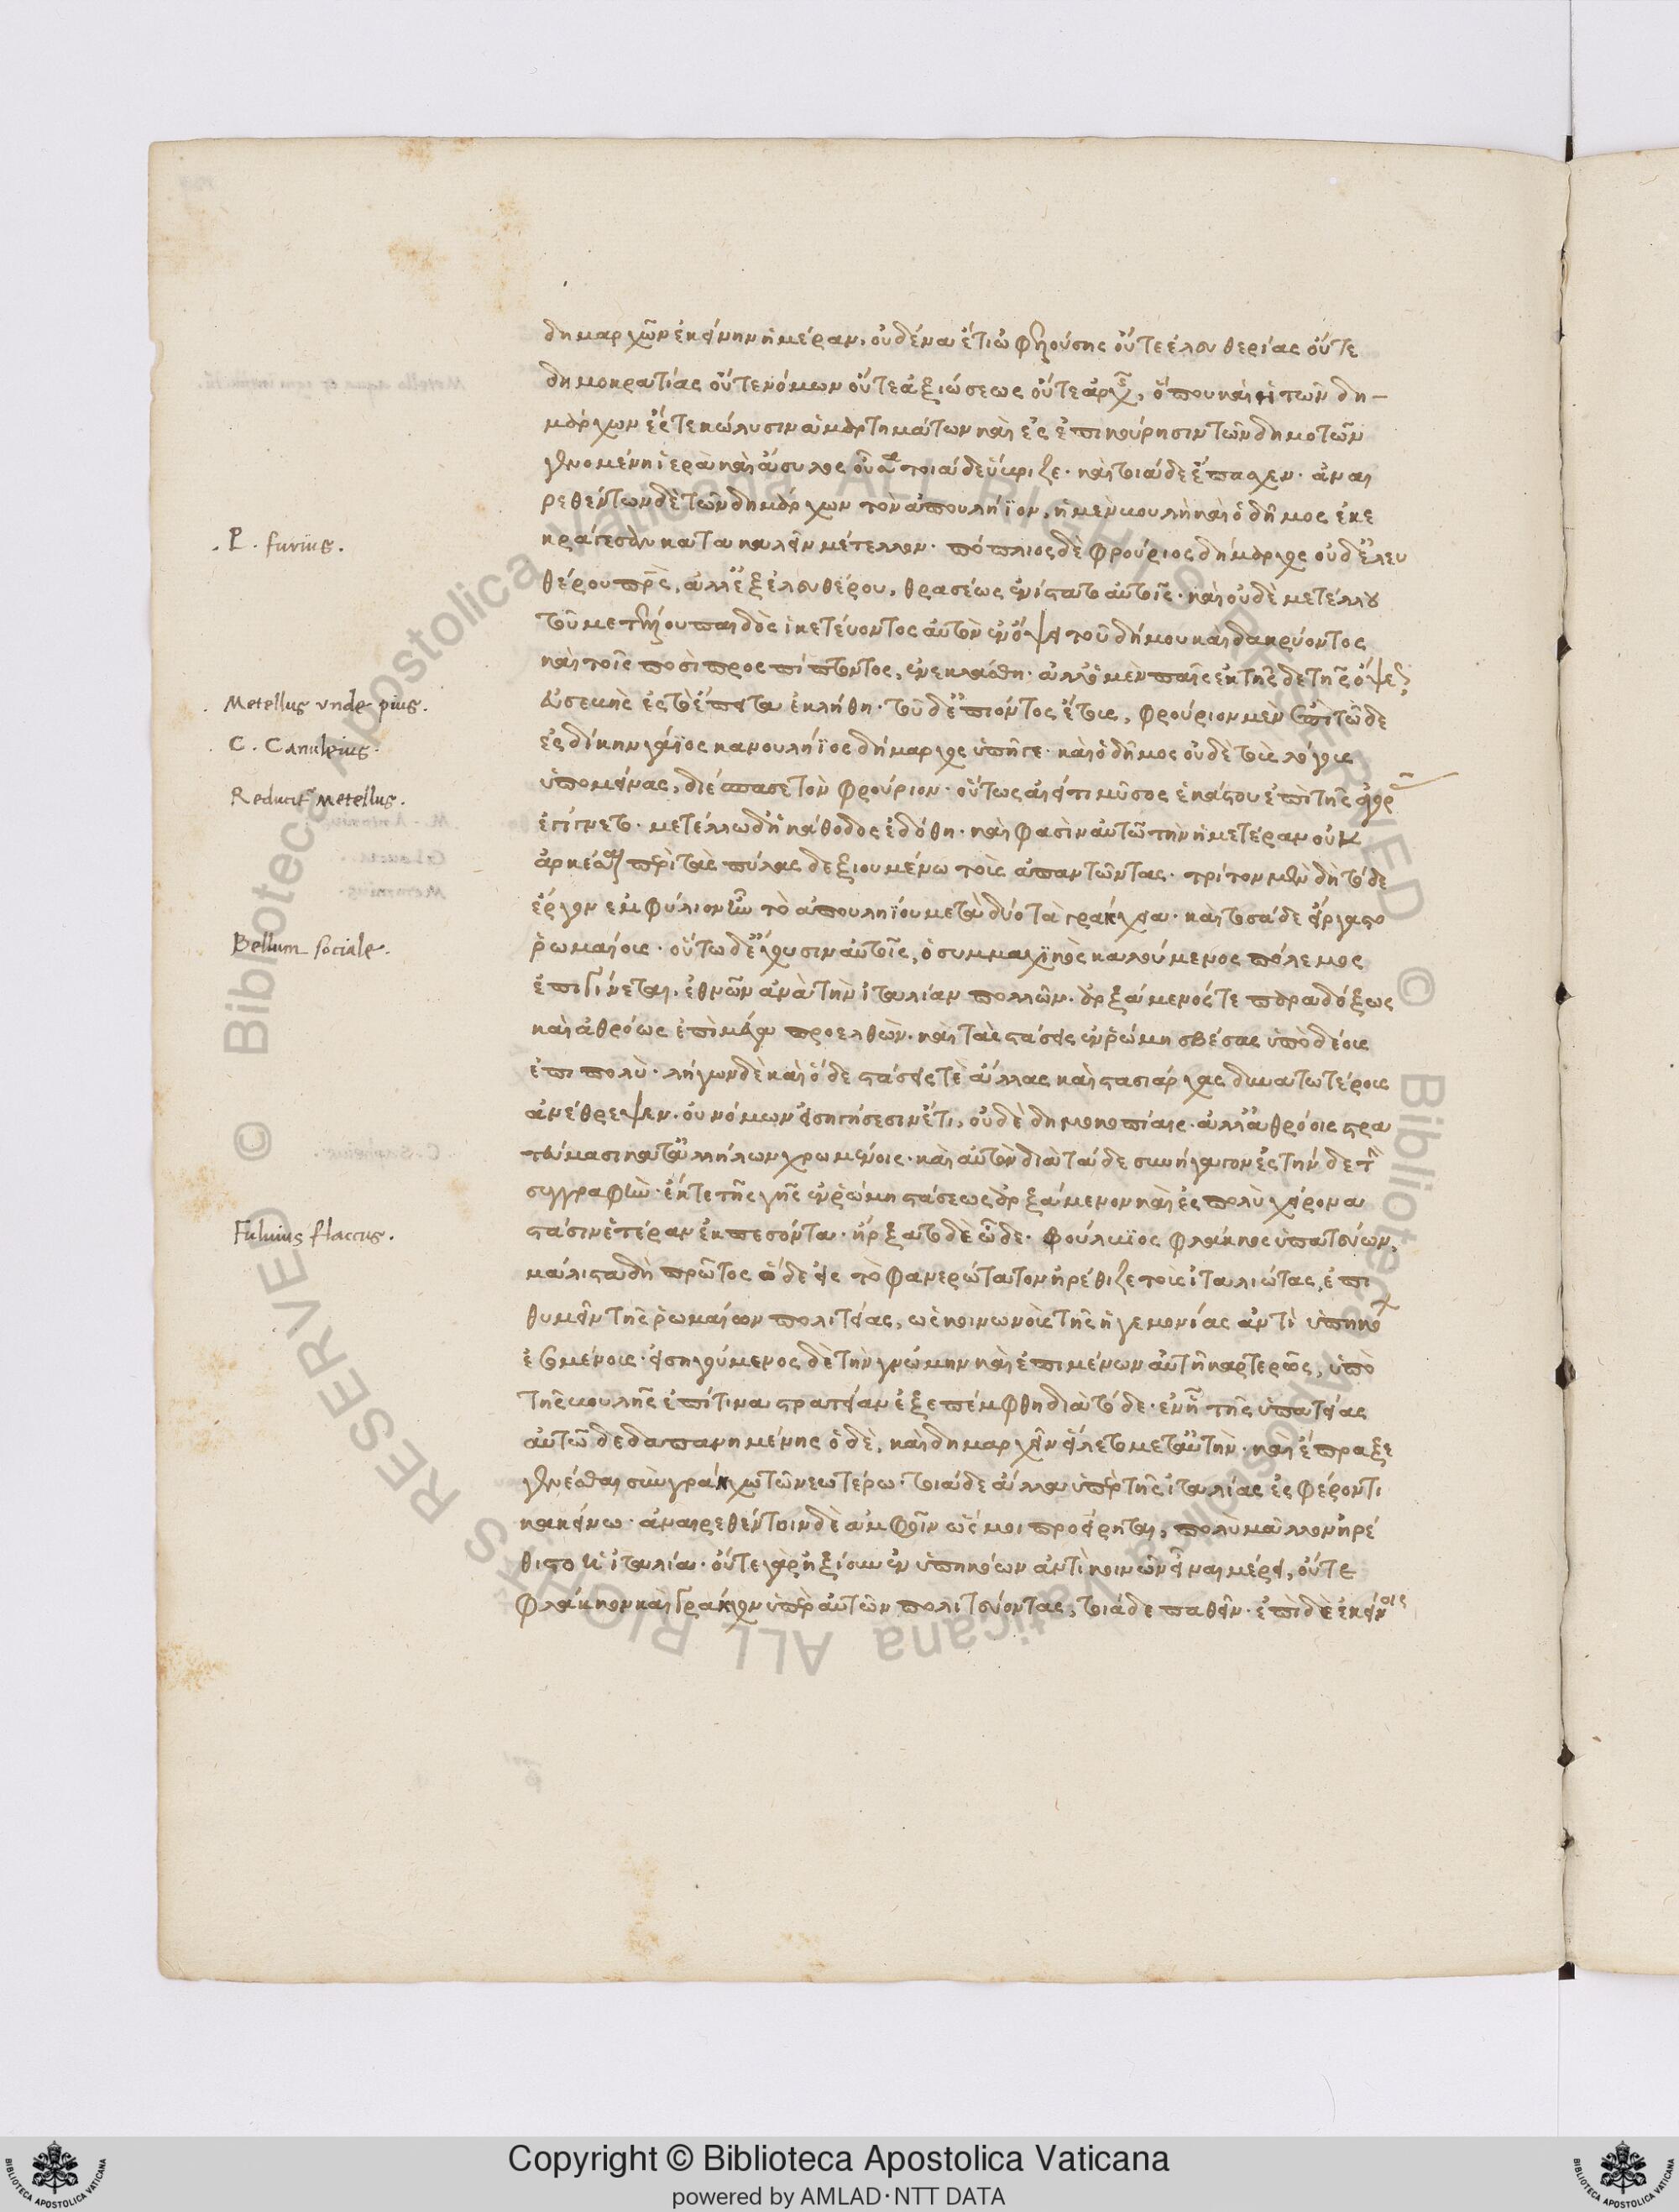 δημαρχῶν ἐκείνην ἡμέραν, οὐδένα ἔτι ὠφελούσης οὔτε ἐλευθερίας οὔτε
δημοκρατίας οὔτε νόμων οὔτε ἀξιώσεως οὔτε ἀρχῆς, ὅπου καὶ ἡ τῶν δη-
μάρχων ἔς τε κώλυσιν ἁμαρτημάτων καὶ ἐς ἐπικούρησιν τῶν δημοτῶν
γενομένη ἱερὰ καὶ ἄσυλος οὖσα τοιάδε ὕβριζε· καὶ τοιάδε ἔπασχεν· ἀναι
ρεθέντων δὲ τῶν δημάρχων τὸν ἀπουλήϊον, ἡ μὲν βουλὴ καὶ ὁ δῆμος ἐκε
κράγεσαν κατακαλεῖν μέτελλον· πόπλιος δὲ φρούριος δήμαρχος οὐδ' ἐλευ
θέρου πρς, ἀλλ' ἐξελευθέρου, θρασέως ἐνίστατο αὐτοῖς· καὶ οὐδὲ μετέλλου
τοῦ μετέλλου παιδὸς ἱκετεύοντος αὐτὸν ἐν ὄψει τοῦ δήμου καὶ δακρύοντος
καὶ τοῖς ποσὶ προσπίπτοντος, ἐνεκλάσθη· ἀλλ' ὁ μὲν παῖς ἐκ τῆς δε τῆς ὄψεως
εὐσεβὴς ἐς τὸ ἔπειτα ἐκλήθη· τοῦ δ' ἐπιόντος ἔτους, φρούριον μὲν ἐπὶ τῷδε
ἐς δίκην γάϊος κανουλήϊος δήμαρχος ὑπῆγε· καὶ ὁ δῆμος οὐδὲ τοὺς λόγους
ὑπομείνας, διέσπασε τὸν φρούριον· οὕτως αἰεί τι μῦσος ἑκάστου ἐπὶ τῆς ἀγορ
ἐγίγνετο· μετέλλω δ' ἡ κάθοδος ἐδόθη· καὶ φασὶν αὐτῶ τὴν ἡμετέραν οὐκ
ἀρκέσαι περὶ τὰς πύλας δεξιουμένω τοὺς ἀπαντῶντας· τρίτον μὲν δὴ τόδε
ἔργον ἐμφύλιον ἦν τὸ ἀπουληΐου μετὰ δύο τὰ γράκχεια· καὶ τοσάδε εἴργαστο
ῥωμαίοις· οὕτω δ' ἔχουσιν αὐτοῖς, ὁ συμμαχικὸς καλούμενος πόλεμος
ἐπιγίνεται, ἐθνῶν ἀνὰ τὴν ἰταλίαν πολλῶν· ἀρξάμενός τε παραδόξως
καὶ ἀθρόως ἐπὶ μέγα προελθὼν· καὶ τὰς στάσεις ἐν ῥώμη σβέσας ὑπὸ δέους
ἐπι πολὺ· λήγων δὲ καὶ ὅδε στάσεις τὲ ἄλλας καὶ στασιάρχας δυνατωτέρους
ἀνέθρεψεν· οὐ νόμων ἐσηγήσεσιν ἔτι, οὐδὲ δημοκοπίαις· ἀλλ' ἀθρόοις στρα
τεύμασι κατ' ἀλλήλων χρωμένους· καὶ αὐτὸν διὰ τάδε συνήγαγον ἐς τήν δε τὴν
συγγραφὴν· ἔκ τε τῆς γῆς ἐν ῥώμη στάσεως ἀρξάμενον καὶ ἐς πολὺ χείρονα
στάσιν ἑτέραν ἐκπεσόντα· ἤρξατο δὲ ὧδε· φούλβϊος φλάκκος ὑπατεύων,
μάλιστα δὴ πρῶτος ὅδε εἰς τὸ φανερώτατον ἠρέθιζε τοὺς ἰταλιώτας, ἐπι
θυμεῖν τῆς ῥωμαίων πολιτείας, ὡς κοινωνοὺς τῆς ἡγεμονίας ἀντὶ ὑπηκό
ἐσομένους· ἐσηγούμενος δὲ τὴν γνώμην καὶ ἐπιμένων αὐτῆ καρτερῶς, ὑπὸ
τῆς βουλῆς ἐπί τινα στρατείαν ἐξεπέμφθη διὰ τόδε· ἐν ἧ τῆς ὑπατείας
αὐτῶ δεδαπανημένης ὁ δὲ, καὶ δημαρχεῖν εἵλετο μετ' αὐτὴν· καὶ ἔπραξε
γενέσθαι σὺν γράκχω τῶ νεωτέρω· τοιάδε ἄλλα ὑπὲρ τῆς ἰταλίας ἐσφέροντι
κακείνω· ἀναιρεθέντοιν δὲ ἀμφοῖν ὡς μοι προείρηται, πολὺ μᾶλλον ἠρέ
θιστο ἡ ἰταλία· οὔτε γὰρ ἠξίουν ἐν ὑπηκόων ἀντὶ κοινωνῶν εἶναι μέρει, οὔτε
φλάκκον καὶ γράκχον ὑπὲρ αὐτῶν πολιτεύοντας, τοιάδε παθεῖν· ἐπὶ δὲ ἐκείνοις
P. furius.
Metellus unde pius.
C. Canuleius.
Reducit Metellus.
Bellum sociale.
Fulvius flaccus.
Copyright © Biblioteca Apostolica Vaticana
powered by AMLAD·NTT DATA